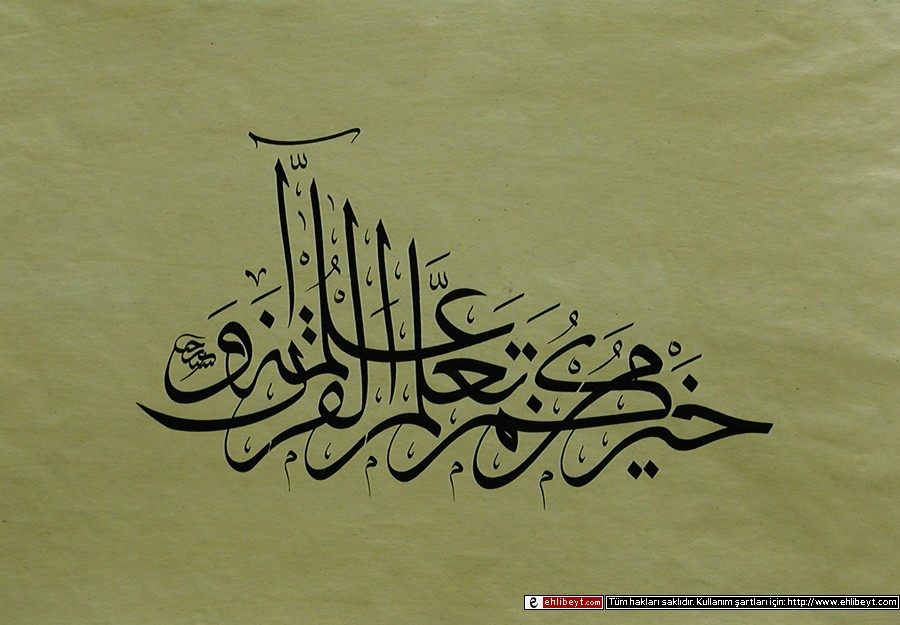 خيركم من تعلم القرآن وعلمه
ehlibeyt.com Tüm hakları saklıdır. Kullanım şartları için: http://www.ehlibeyt.com